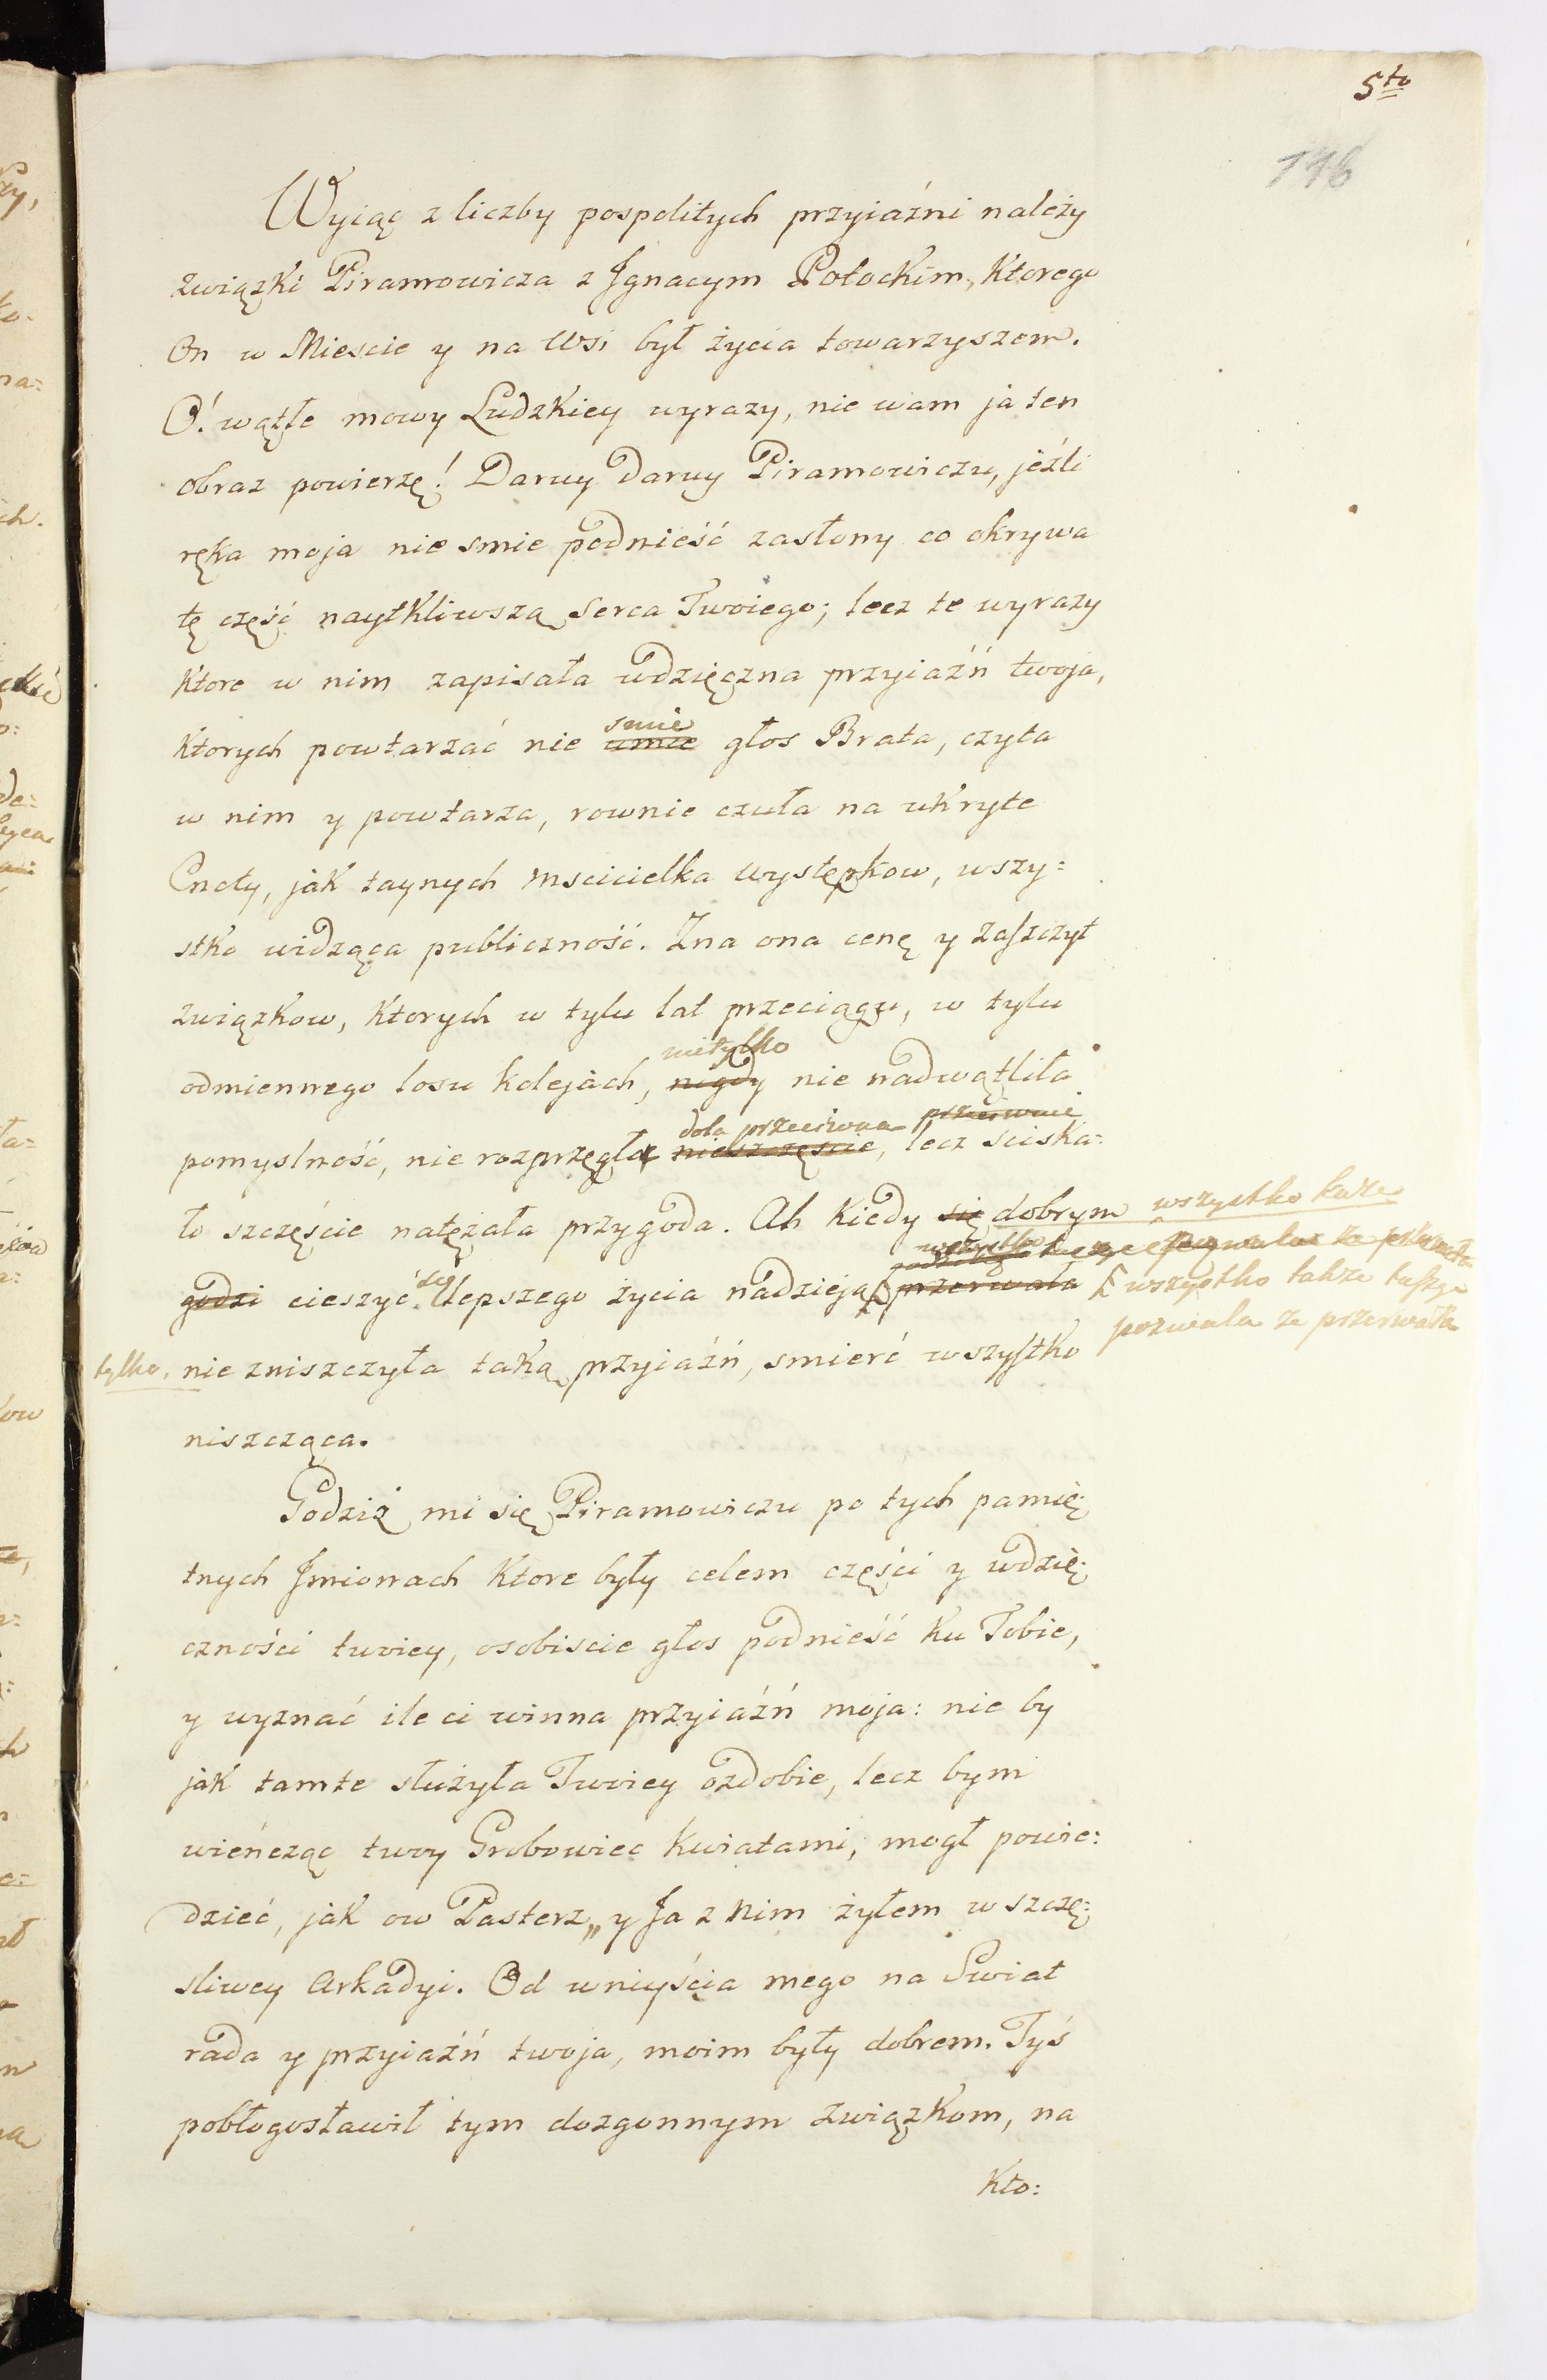 5to
116
Wyiąć z liczby pospolitych przyiaźni należy
związki Piramowicza z Ignacym Potockim, ktorego
On w Miescie y na Wsi był życia towarzyszem.
O! wątłe mowy Ludzkiey wyrazy, nie wam ja ten
obraz powierzę! Daruy daruy Piramowiczu, jeźli
ręka moja nie smie podnieść zasłony co okrywa
tę część naytkliwszą Serca Twoiego; lecz te wyrazy
ktore w nim zapisała wdzięczna przyiaźń twoja,
smie
ktorych powtarzać nie umie głos Brata, czyta
w nim y powtarza, rownie czuła na ukryte
Cnoty, jak taynych mscicielka występkow, wszy=
stko widząca publiczność. Zna ona cenę y zaszczyt
związkow, ktorych w tylu lat przeciągu, w tylu
nietylko
odmiennego losu kolejach, nigdy nie nadwątliła
dola przeciwna przeiwnie
pomyslność, nie rozprzęgła nieszczęscie, lecz sciska=
ło szczęście natężała przygoda. Ah kiedy się dobrym wszystko każe
wszystko
godzi cieszyć się lepszego życia nadzieją przerwała wszystko także tuszyc
pozwala że przerwała
tylko, nie zniszczyła taką przyiaźń, smierć wszystko
niszcząca.
Godziż mi się Piramowiczu po tych pamię=
tnych Imionach ktore były celem części y wdzię=
czności twoiey, osobiscie głos podnieść ku Tobie,
y wyznać ile ci winna przyiaźń moja: nie by
jak tamte służyła Twoiey ozdobie, lecz bym
wieńcząc twoy Grobowiec kwiatami, mogł powie=
dzieć, jak ow Pasterz „y Ja z Nim żyłem w szczę=
sliwey Arkadyi. Od wniyścia mego na Swiat
rada y przyiaźń twoja, moim były dobrem. Tyś
pobłogosławił tym dozgonnym związkom, na
Kto: